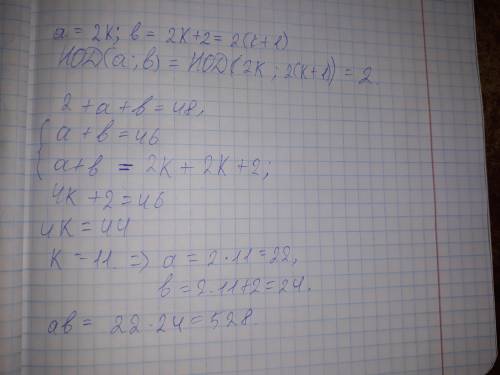 a = 2k; b = 2k+2 = 2(k+1)
НОД(a; b) = НОД(2k; 2(k+1)) = 2
2 + a + b = 48,
{ a + b = 46
a+b = 2k + 2k + 2;
4k + 2 = 46
4k = 44
k = 11 => a = 2·11 = 22,
b = 2·11+2 = 24.
ab = 22·24 = 528.